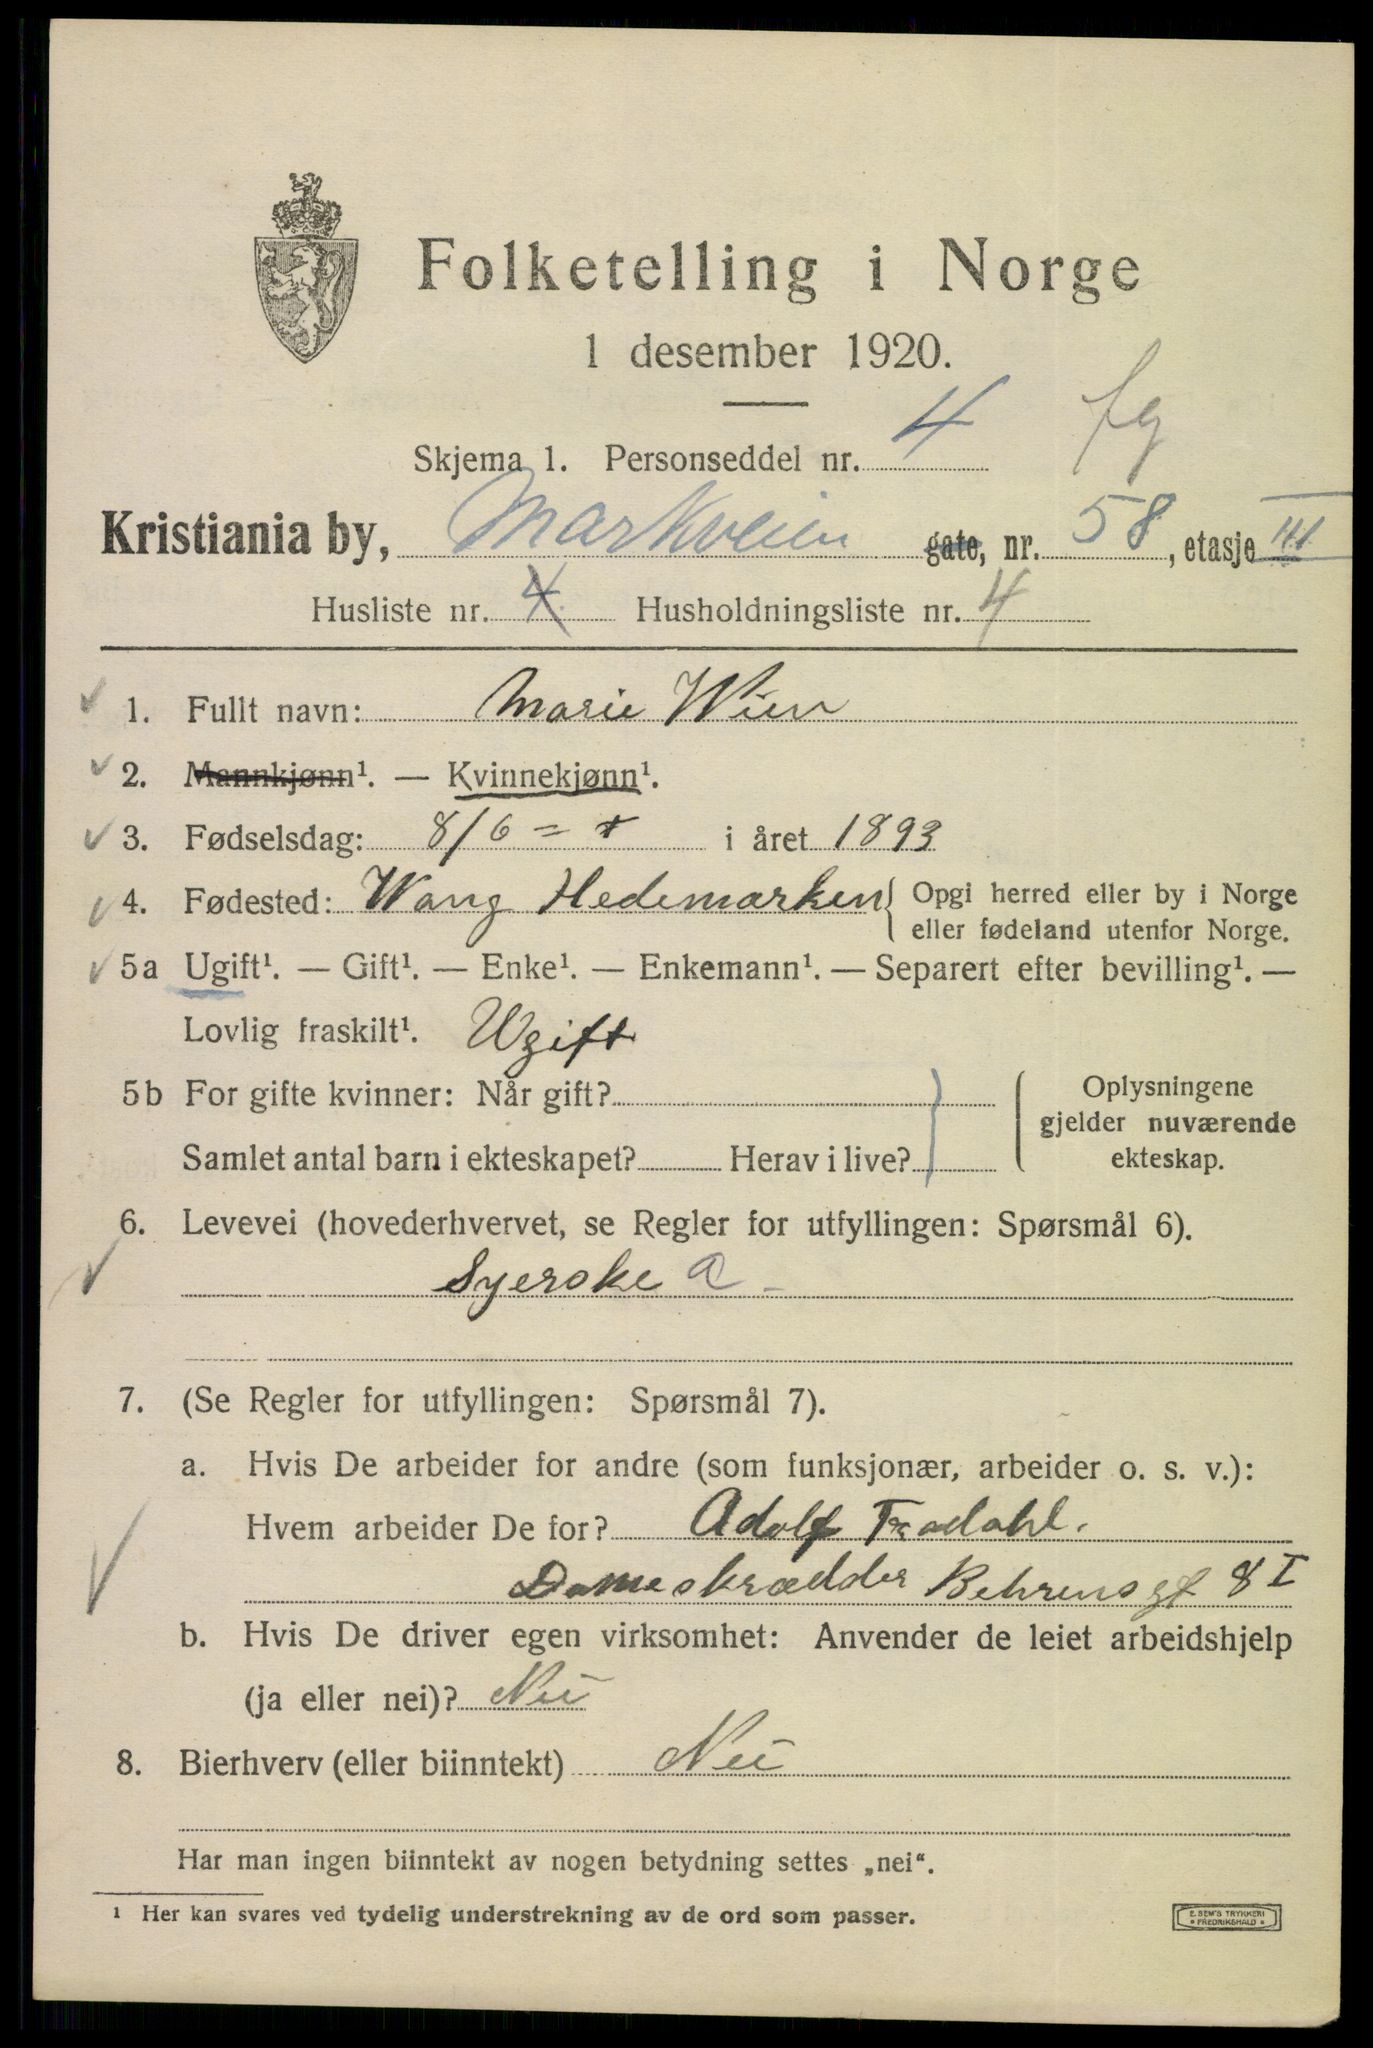 Folketelling i Norge
1 desember 1920.
Skjema 1. Personseddel nr. 4 fg
Kristiania by, Markveien gate, nr. 58, etasje III
Husliste nr. 4 Husholdningsliste nr. 4
1. Fullt navn: Marie Wien
2. Mannkjønn¹. — Kvinnekjønn¹.
3. Fødselsdag: 8/6 = i året 1893
4. Fødested: Wang Hedemarken Opgi herred eller by i Norge
eller fødeland utenfor Norge.
5a Ugift¹. — Gift¹. — Enke¹. — Enkemann¹. — Separert efter bevilling¹. —
Lovlig fraskilt¹. Ugift
5b For gifte kvinner: Når gift?
Samlet antal barn i ekteskapet? Herav i live?
Oplysningene
gjelder nuværende
ekteskap.
6. Levevei (hovederhvervet, se Regler for utfyllingen: Spørsmål 6).
Syerske a
7. (Se Regler for utfyllingen: Spørsmål 7).
a. Hvis De arbeider for andre (som funksjonær, arbeider o. s. v.):
Hvem arbeider De for? Adolf
Dameskrædder Behrensgt 8 I
b. Hvis De driver egen virksomhet: Anvender de leiet arbeidshjelp
(ja eller nei)? Nei
8. Bierhverv (eller biinntekt) Nei
Har man ingen biinntekt av nogen betydning settes „nei“.
¹ Her kan svares ved tydelig understrekning av de ord som passer.
E. SEM'S TRYKKERI
• FREDRIKSHALD •